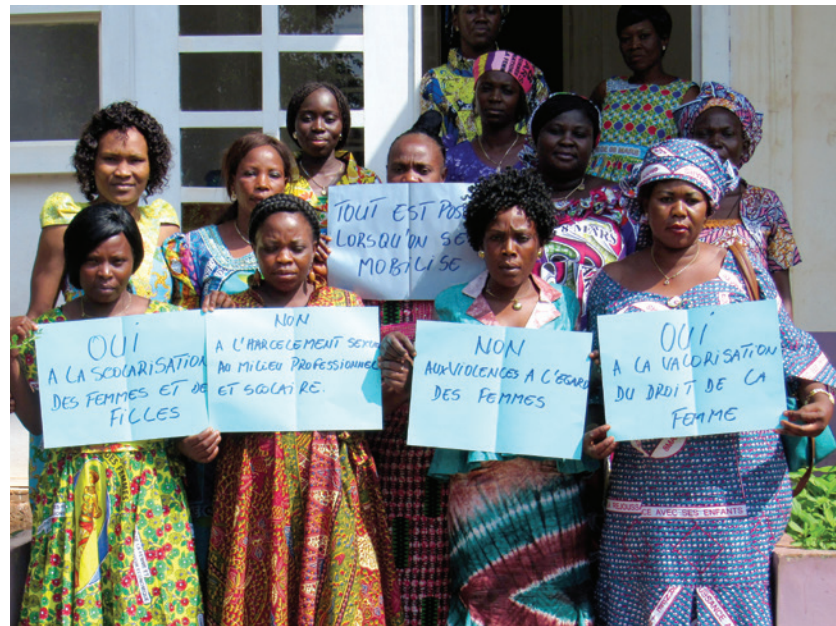 TOUT EST
LORSQU'ON SE
MOBILISE
OUI
A LA SCOLARISATION
DES FEMMES ET DE
FILLES
NON
A L'HARCELEMENT
AU MILIEU PROFESSIONNEL
ET SCOLAIRE.
NON
AUX VIOLENCES A L'EGARD
DES FEMMES
OUI
A LA VALORISATION
DU DROIT DE LA
FEMME
8 MARS
CE AVEC SES ENFANTS